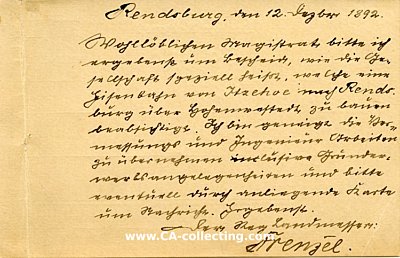 Rendsburg, den 12. Dezber 1892.
Wohllöblichen Magistrat bitte ich
ergebenst um Bescheid, wie die Ge-
sellschaft speziell heißt, welche eine
Eisenbahn von Itzehoe nach Rends-
burg über Hohenwestedt zu bauen
beabsichtigt. Ich bin geneigt die Ver-
messungs und Ingenieur Arbeiten
zu übernehmen inclusive Grunder-
werbsangelegenheiten und bitte
eventuell durch anliegende Karte
um Nachricht. Ergebenst.
Der Reg Landmesser:
Frenzel.
www.CA-collecting.com